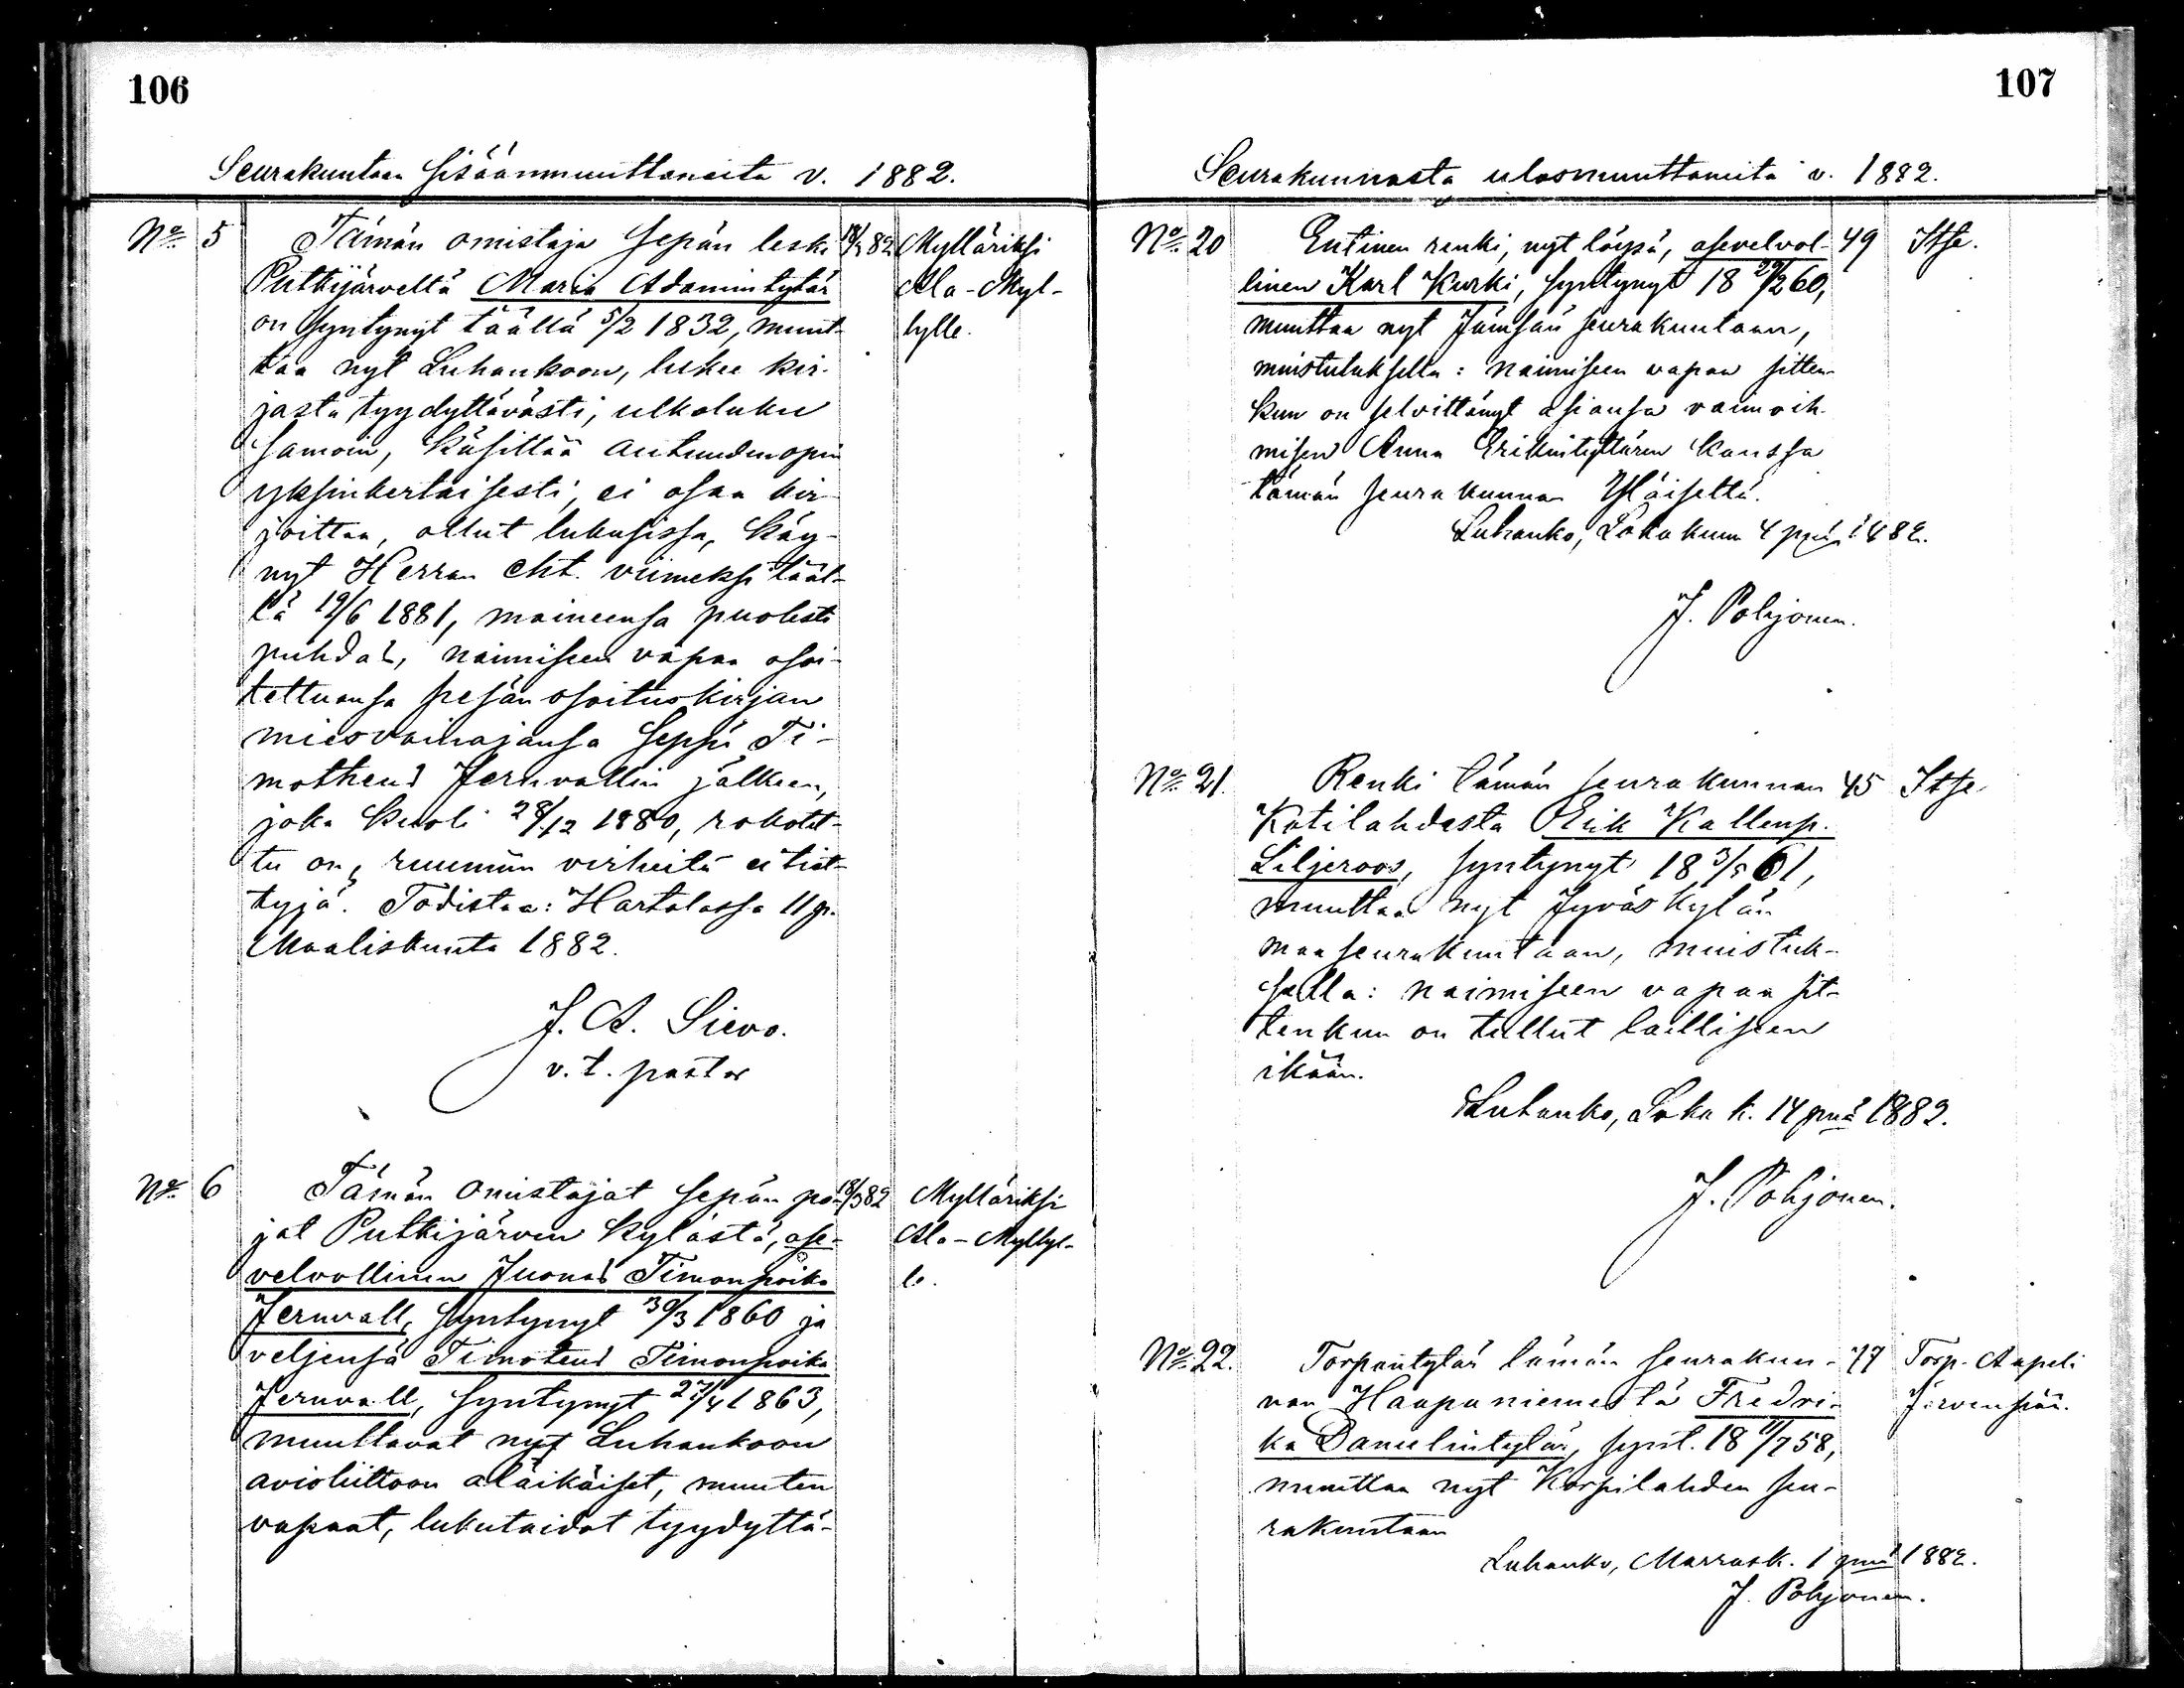 106
Seurakuntaan sisäänmuuttaneita v. 1882.
No 5 Tämän omistaja sepän leski 18/3 82 Mylläriksi
Putkijärveltä Maria Adamintytär Ala-Myl-
on syntynyt täällä 5/2 1832, muut- lylle.
taa nyt Luhankoon, lukee kir-
jasta tyydyttävästi, ulkoluku
samoin, käsittää autuudenopin
yksinkertaisesti, ei osaa kir-
joittaa, ollut lukusissa, käy-
nyt Herran eht. viimeksi tääl-
lä 19/6 1881, maineensa puolesta
puhdas, naimiseen vapaa osoi-
tettuansa pesänosoituskirjan
miesvainajansa Seppä Ti-
motheus Jernvallin jälkeen,
joka kuoli 28/12 1880, rokotet-
tu on, ruumiin virheitä ei tiet-
tyjä. Todistaa: Hartolassa 11 p.
Maaliskuuta 1882.
J. A. Sievo.
v. t. pastor
No 6 Tämän omistajat sepän po- 18/3 82 Mylläriksi
jat Putkijärven kylästä, ase- Ala-Myllyl-
velvollinen Juonas Timonpoika le.
Jernvall, syntynyt 30/3 1860 ja
veljensä Timoteus Timonpoika
Jernvall, syntynyt 27/4 1863,
muuttavat nyt Luhankoon
avioliittoon aläikäiset, muuten
vapaat, lukutaidot tyydyttä-
107
Seurakunnasta ulosmuuttaneita v. 1882.
No 20 Entinen renki, nyt löysä, asevelvol- 49 Itse.
linen Karl Kurki, syntynyt 18 29/2 60,
muuttaa nyt Jämsän seurakuntaan,
muistutuksella: naimiseen vapaa sitten
kun on selvittänyt asiansa vaimoih-
misen Anna Erikintyttären kanssa
tämän seurakunnan Yläiseltä.
Luhanko, Lokakuun 4 pnä 1882.
J. Pohjonen.
No 21. Renki tämän seurakunnan 45 Itse
Kotilahdesta Erik Kallenp.
Liljeroos, syntynyt 18 3/5 61,
muuttaa nyt Jyväskylän
maaseurakuntaan, muistuk-
sella: naimiseen vapaa sit-
tenkun on tullut lailliseen
ikään.
Luhanko, Loka k. 14 pnä 1882.
J. Pohjonen.
No 22. Torpantytär tämän seurakun- 77 Torp. Aapeli
nan Haapaniemestä Fredri- Järvenpää.
ka Danielintytär, synt. 18 11/7 58,
muuttaa nyt Korpilahden seu-
rakuntaan
Luhanko, Marrask. 1 pnä 1882.
J. Pohjonen.